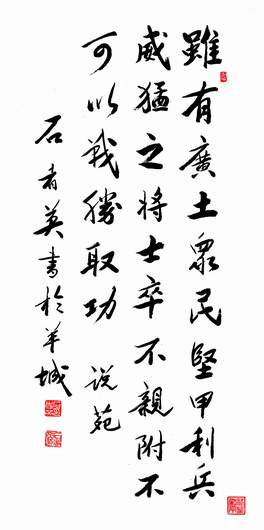 雖有廣土眾民堅甲利兵
威猛之將士卒不親附不
可以戰勝取功 說苑
石者英書於羊城